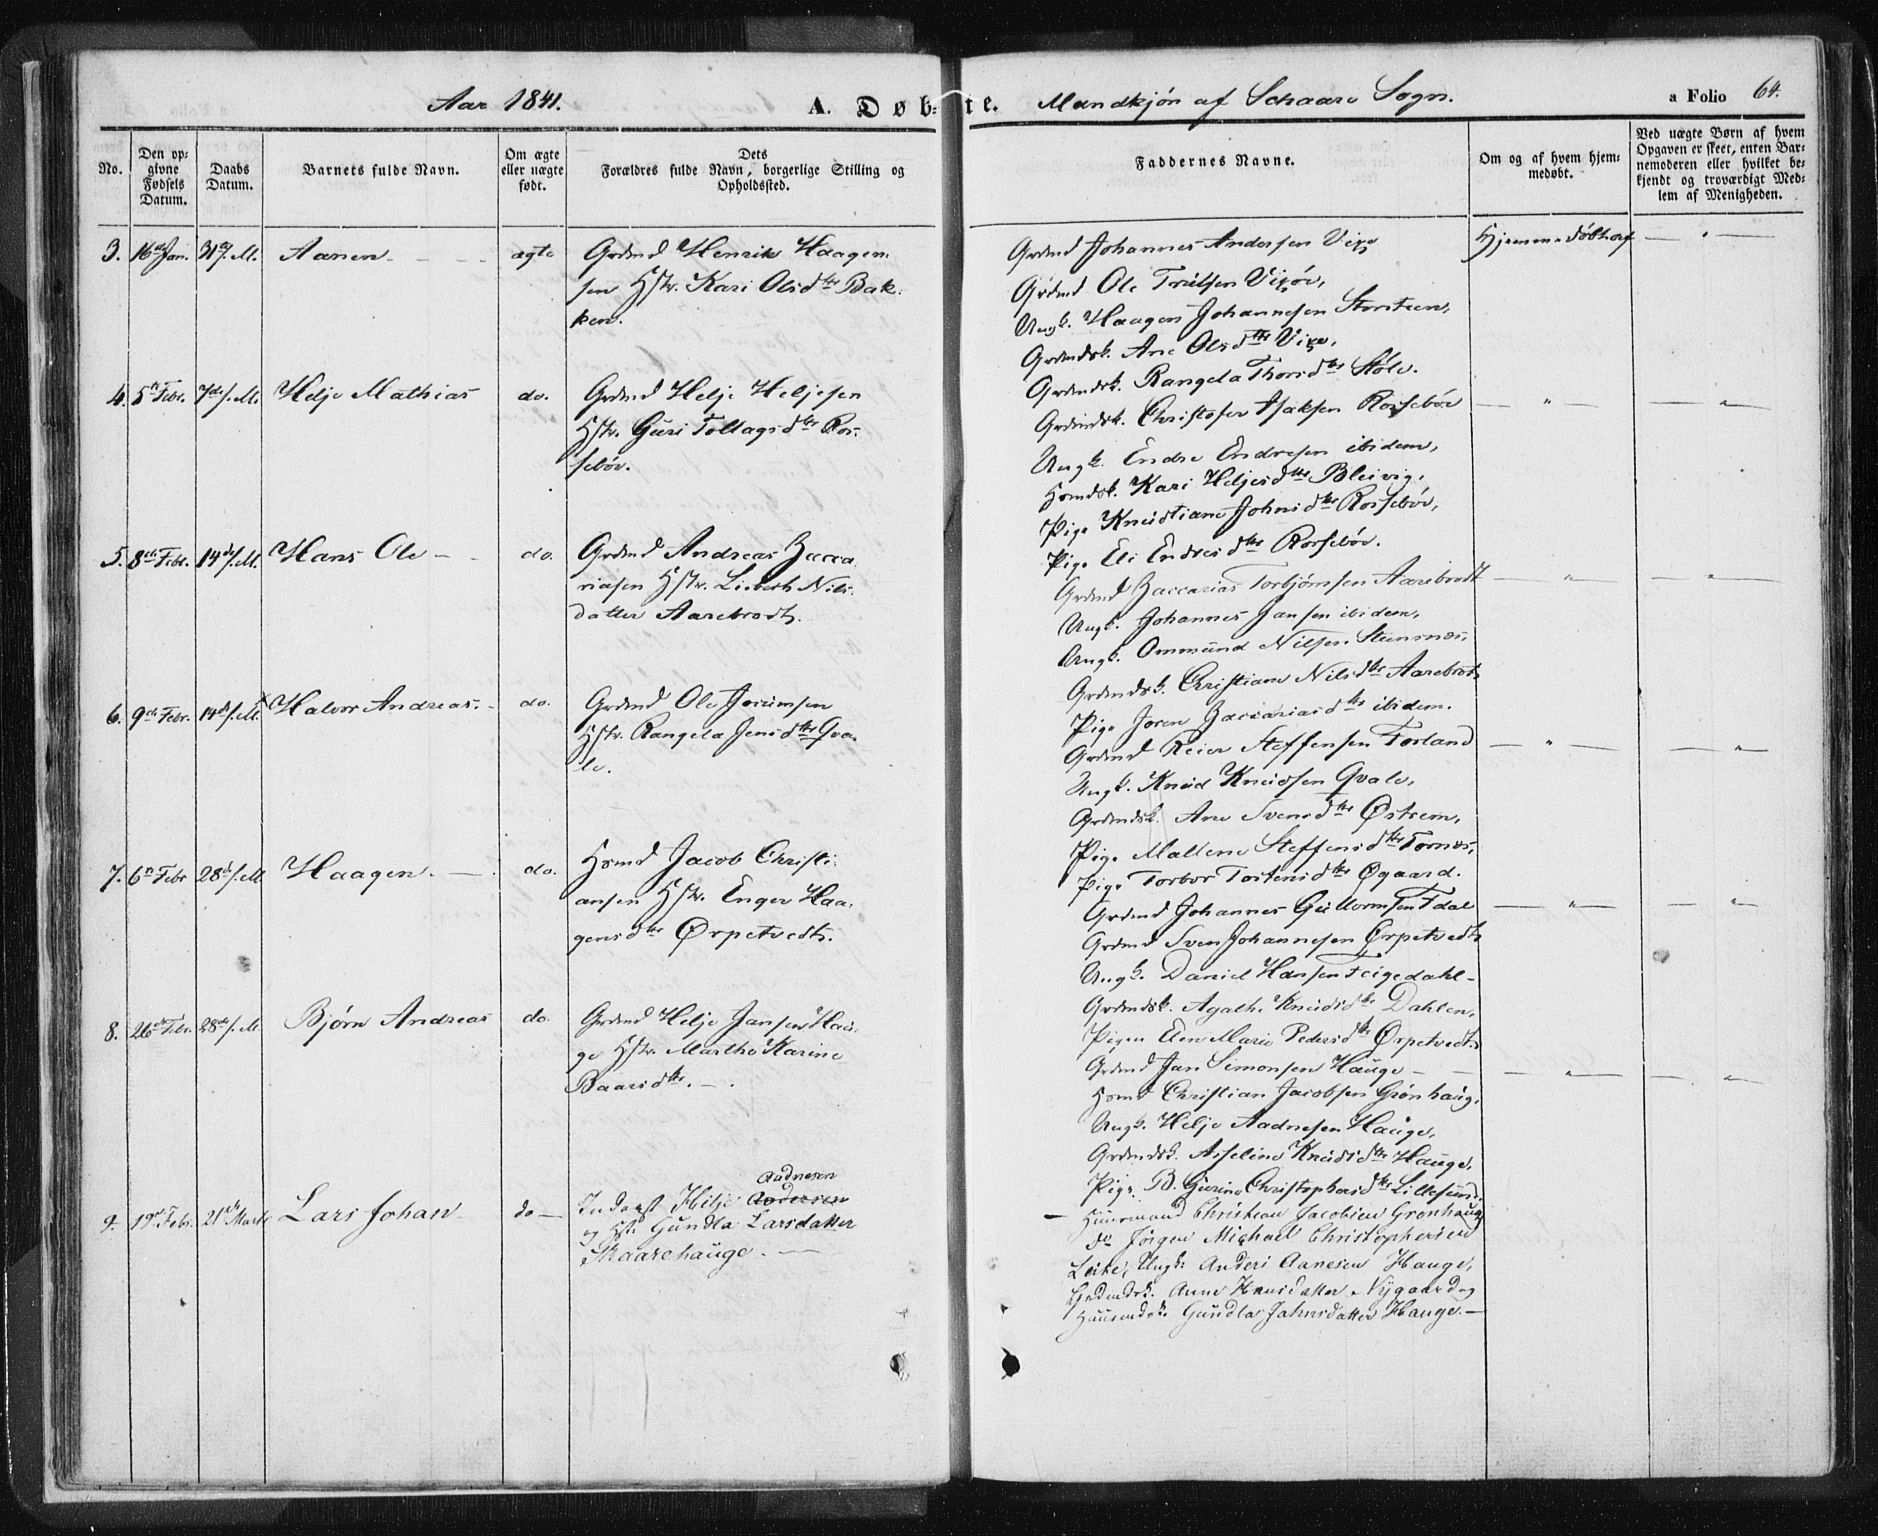 Aar 1841.
A. Døb-te. Mandkjön af Schaare Sogn.
a Folio 64.
No.
Den op-
givne
Fødsels
Datum.
Daabs
Datum.
Barnets fulde Navn.
Om ægte
eller uægte
født.
Dets
Forældres fulde Navn, borgerlige Stilling og
Opholdssted.
Faddernes Navne.
Om og af hvem hjem-
medøbt.
Ved uægte Børn af hvem
Opgaven er skeet, enten Bar-
nemoderen eller hvilket be-
kjendt og troværdigt Med-
lem af Menigheden.
3. 16de Jan. 31te s. M. Aanen ægte
Grdmd Henrik Haagen-
sen Hstr. Kari Olsdtr Bak-
ken.
Grdmd Johannes Andersen Vixe
Grdmd Ole Trulsen Vixöe,
Ungk. Haagen Johannesen Storsteen,
Grdmdsk. Ane Olsdtr Vixe,
Grdmdsk. Rangela Thorsdtr Stöle.
Hjemmedöbthos
4. 5te Febr. 7de s. M. Helje Mathias do.
Grdmd Helje Heljesen
Hstr. Guri Tollagsdtr Ros-
seböe.
Grdmdsk. Christofer Isaksen Rosseböe
Ungk. Endre Endresen ibidem,
Hsmdsk. Kari Heljesdtr Bleivig,
Pige Knudtiane Johnsdtr Rosseböe,
Pige Eli Endresdtr Rosseböe.
5. 8de Febr. 14de s. M. Hans Ole do.
Grdmd Andreas Zacca-
riasen Hstr. Lisbeth Nils-
datter Aarebrodt.
Grdmd Zaccarias Torbjörnsen Aarebrodt
Ungk. Johannes Jansen ibidem,
Ungk. Ommund Nilsen Steensnæs,
Grdmdsk. Christiane Nilsdtr Aarebrodt,
Pige Joren Zaccariasdtr ibidem.
6. 9de Febr. 14de s. M. Halvor Andreas. do.
Grdmd Ole Jorumsen
Hstr. Rangela Jensdtr Qva-
le.
Grdmd Reier Steffensen Torland
Ungk. Knud Knudsen Qvale,
Grdmdsk. Ane Svensdtr Østrem,
Pige Mallene Steffensdtr Tornæs,
Pige Torbor Torstensdtr Øgaard.
7. 6te Febr 28de s. M Haagen. do.
Hsmd Jacob Christi-
ansen Hstr. Enger Haa-
gensdtr Ørpetvedt.
Grdmd Johannes Guttormsen Tdal
Grdmd Sven Johannesen Ørpetvedt
Ungk. Daniel Hansen Feigedahl
Grdmdsk. Agathe Knudsdtr Dahlen,
Pigen Elen Marie Pedersdtr Ørpetvedt.
8. 26de Febr. 28de s. M. Bjørn Andreas do.
Grdmd Helje Jansen Hau-
ge Hstr. Marthe Karine
Baarsdtr.
Grdmd Jan Simonsen Hauge
Hsmd Christian Jacobsen Grönhaug,
Ungk. Helje Aadnesen Hauge,
Grdmdsk. Asseline Knudsdtr Hauge,
Pige B. Gurine Christophersdtr Lillesund.
9. 19de Febr. 21de Marts Lars Johan do
Inderst Helje Andersen Aadnesen
og Hst. Gundla Larsdatter
Skaarehauge.
Huusmand Christian Jacobsen Grönhaug
do Jörgen Michael Christophersen
Leite, Ungk: Anders Aanesen Hauge,
Grdmdsk. Anne Hansdatter Nygaard og
Huusmdsk. Gundla Jahnsdatter Hauge.